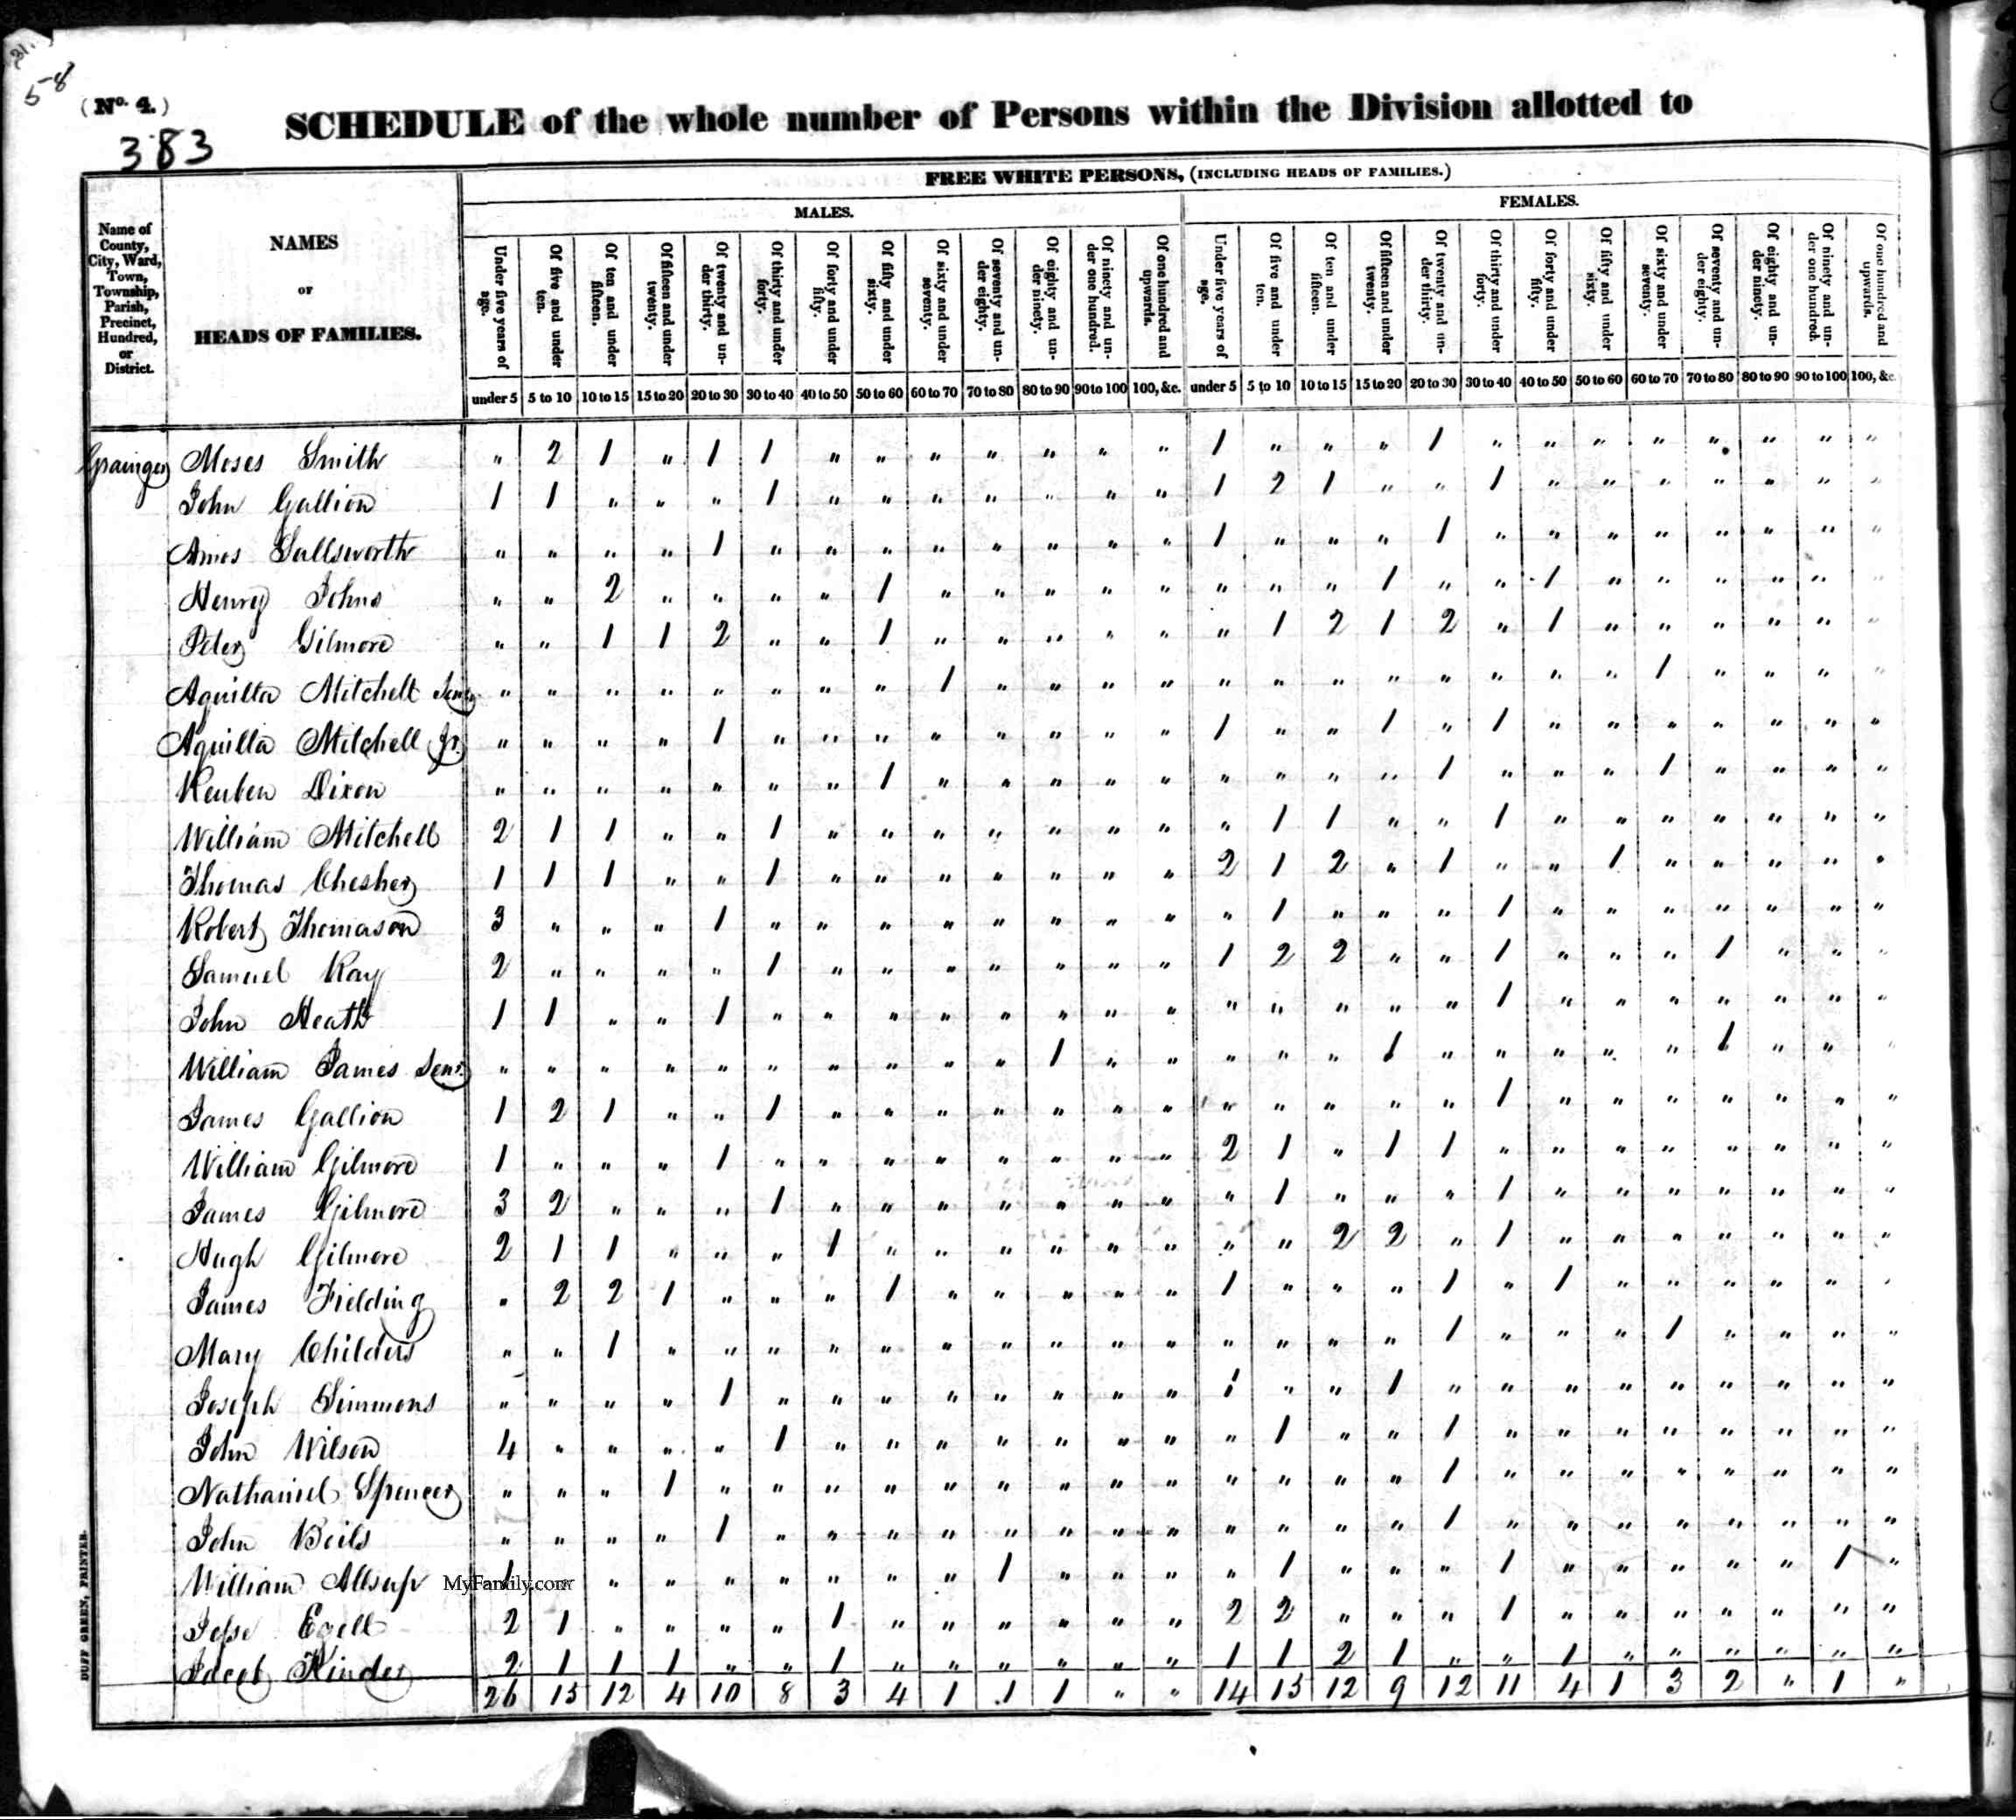 58
(No. 4.)
383
SCHEDULE of the whole number of Persons within the Division allotted to
FREE WHITE PERSONS, (INCLUDING HEADS OF FAMILIES.)
MALES. FEMALES.
Name of County, City, Ward, Town, Township, Parish, Precinct, Hundred, or District.
NAMES
OF
HEADS OF FAMILIES.
Under five years of age. Of five and under ten. Of ten and under fifteen. Of fifteen and under twenty. Of twenty and under thirty. Of thirty and under forty. Of forty and under fifty. Of fifty and under sixty. Of sixty and under seventy. Of seventy and under eighty. Of eighty and under ninety. Of ninety and under one hundred. Of one hundred and upwards. Under five years of age. Of five and under ten. Of ten and under fifteen. Of fifteen and under twenty. Of twenty and under thirty. Of thirty and under forty. Of forty and under fifty. Of fifty and under sixty. Of sixty and under seventy. Of seventy and under eighty. Of eighty and under ninety. Of ninety and under one hundred. Of one hundred and upwards.
under 5 5 to 10 10 to 15 15 to 20 20 to 30 30 to 40 40 to 50 50 to 60 60 to 70 70 to 80 80 to 90 90 to 100 100, &c. under 5 5 to 10 10 to 15 15 to 20 20 to 30 30 to 40 40 to 50 50 to 60 60 to 70 70 to 80 80 to 90 90 to 100 100, &c.
Grainger Moses Smith " 2 1 " 1 1 " " " " " " " 1 " " " 1 " " " " " " " "
John Gallion 1 1 " " " 1 " " " " " " " 1 2 1 " " 1 " " " " " " "
Amos Sullsworth " " " " 1 " " " " " " " " 1 " " " 1 " " " " " " " "
Henry Johns " " 2 " " " " 1 " " " " " " " " 1 " " 1 " " " " " "
Peter Gilmore " " 1 1 2 " " 1 " " " " " " 1 2 1 2 " 1 " " " " " "
Aquilla Mitchell Senr " " " " " " " " 1 " " " " " " " " " " " " 1 " " " "
Aquilla Mitchell Jr. " " " " 1 " " " " " " " " 1 " " 1 " 1 " " " " " " "
Reuben Dixon " " " " " " " 1 " " " " " " " " " 1 " " " 1 " " " "
William Mitchell 2 1 1 " " 1 " " " " " " " " 1 1 " " 1 " " " " " " "
Thomas Chesher 1 1 1 " " 1 " " " " " " " 2 1 2 " 1 " " 1 " " " " "
Robert Thomason 3 " " " 1 " " " " " " " " " 1 " " " 1 " " " " " " "
Samuel Ray 2 " " " " 1 " " " " " " " 1 2 2 " " 1 " " " 1 " " "
John Heath 1 1 " " 1 " " " " " " " " " " " " " 1 " " " " " " "
William James Senr. " " " " " " " " " " 1 " " " " " 1 " " " " " 1 " " "
James Gallion 1 2 1 " " 1 " " " " " " " " " " " " 1 " " " " " " "
William Gilmore 1 " " " 1 " " " " " " " " 2 1 " 1 1 " " " " " " " "
James Gilmore 3 2 " " " 1 " " " " " " " " 1 " " " 1 " " " " " " "
Hugh Gilmore 2 1 1 " " " 1 " " " " " " " " 2 2 " 1 " " " " " " "
James Fielding " 2 2 1 " " " 1 " " " " " 1 " " " 1 " 1 " " " " " "
Mary Childers " " 1 " " " " " " " " " " " " " " 1 " " " 1 " " " "
Joseph Simmons " " " " 1 " " " " " " " " 1 " " 1 " " " " " " " " "
John Wilson 4 " " " " 1 " " " " " " " " 1 " " 1 " " " " " " " "
Nathaniel Spencer " " " 1 " " " " " " " " " " " " " 1 " " " " " " " "
John Beils " " " " 1 " " " " " " " " " " " " 1 " " " " " " " "
William Allsup 1 " " " " " " " " 1 " " " " 1 " " " 1 " " " " " 1 "
Jesse Ezell 2 1 " " " " 1 " " " " " " 2 2 " " " 1 " " " " " " "
Jacob Kinder 2 1 1 1 " " 1 " " " " " " 1 1 2 1 " " 1 " " " " " "
26 15 12 4 10 8 3 4 1 1 1 " " 14 15 12 9 12 11 4 1 3 2 " 1 "
MyFamily.com
DUFF GREEN, PRINTER.